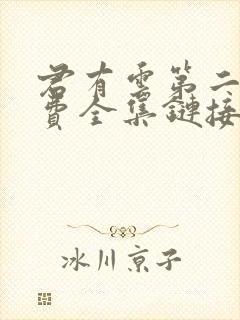 君有雲第二
費全集鏈接
冰川京子